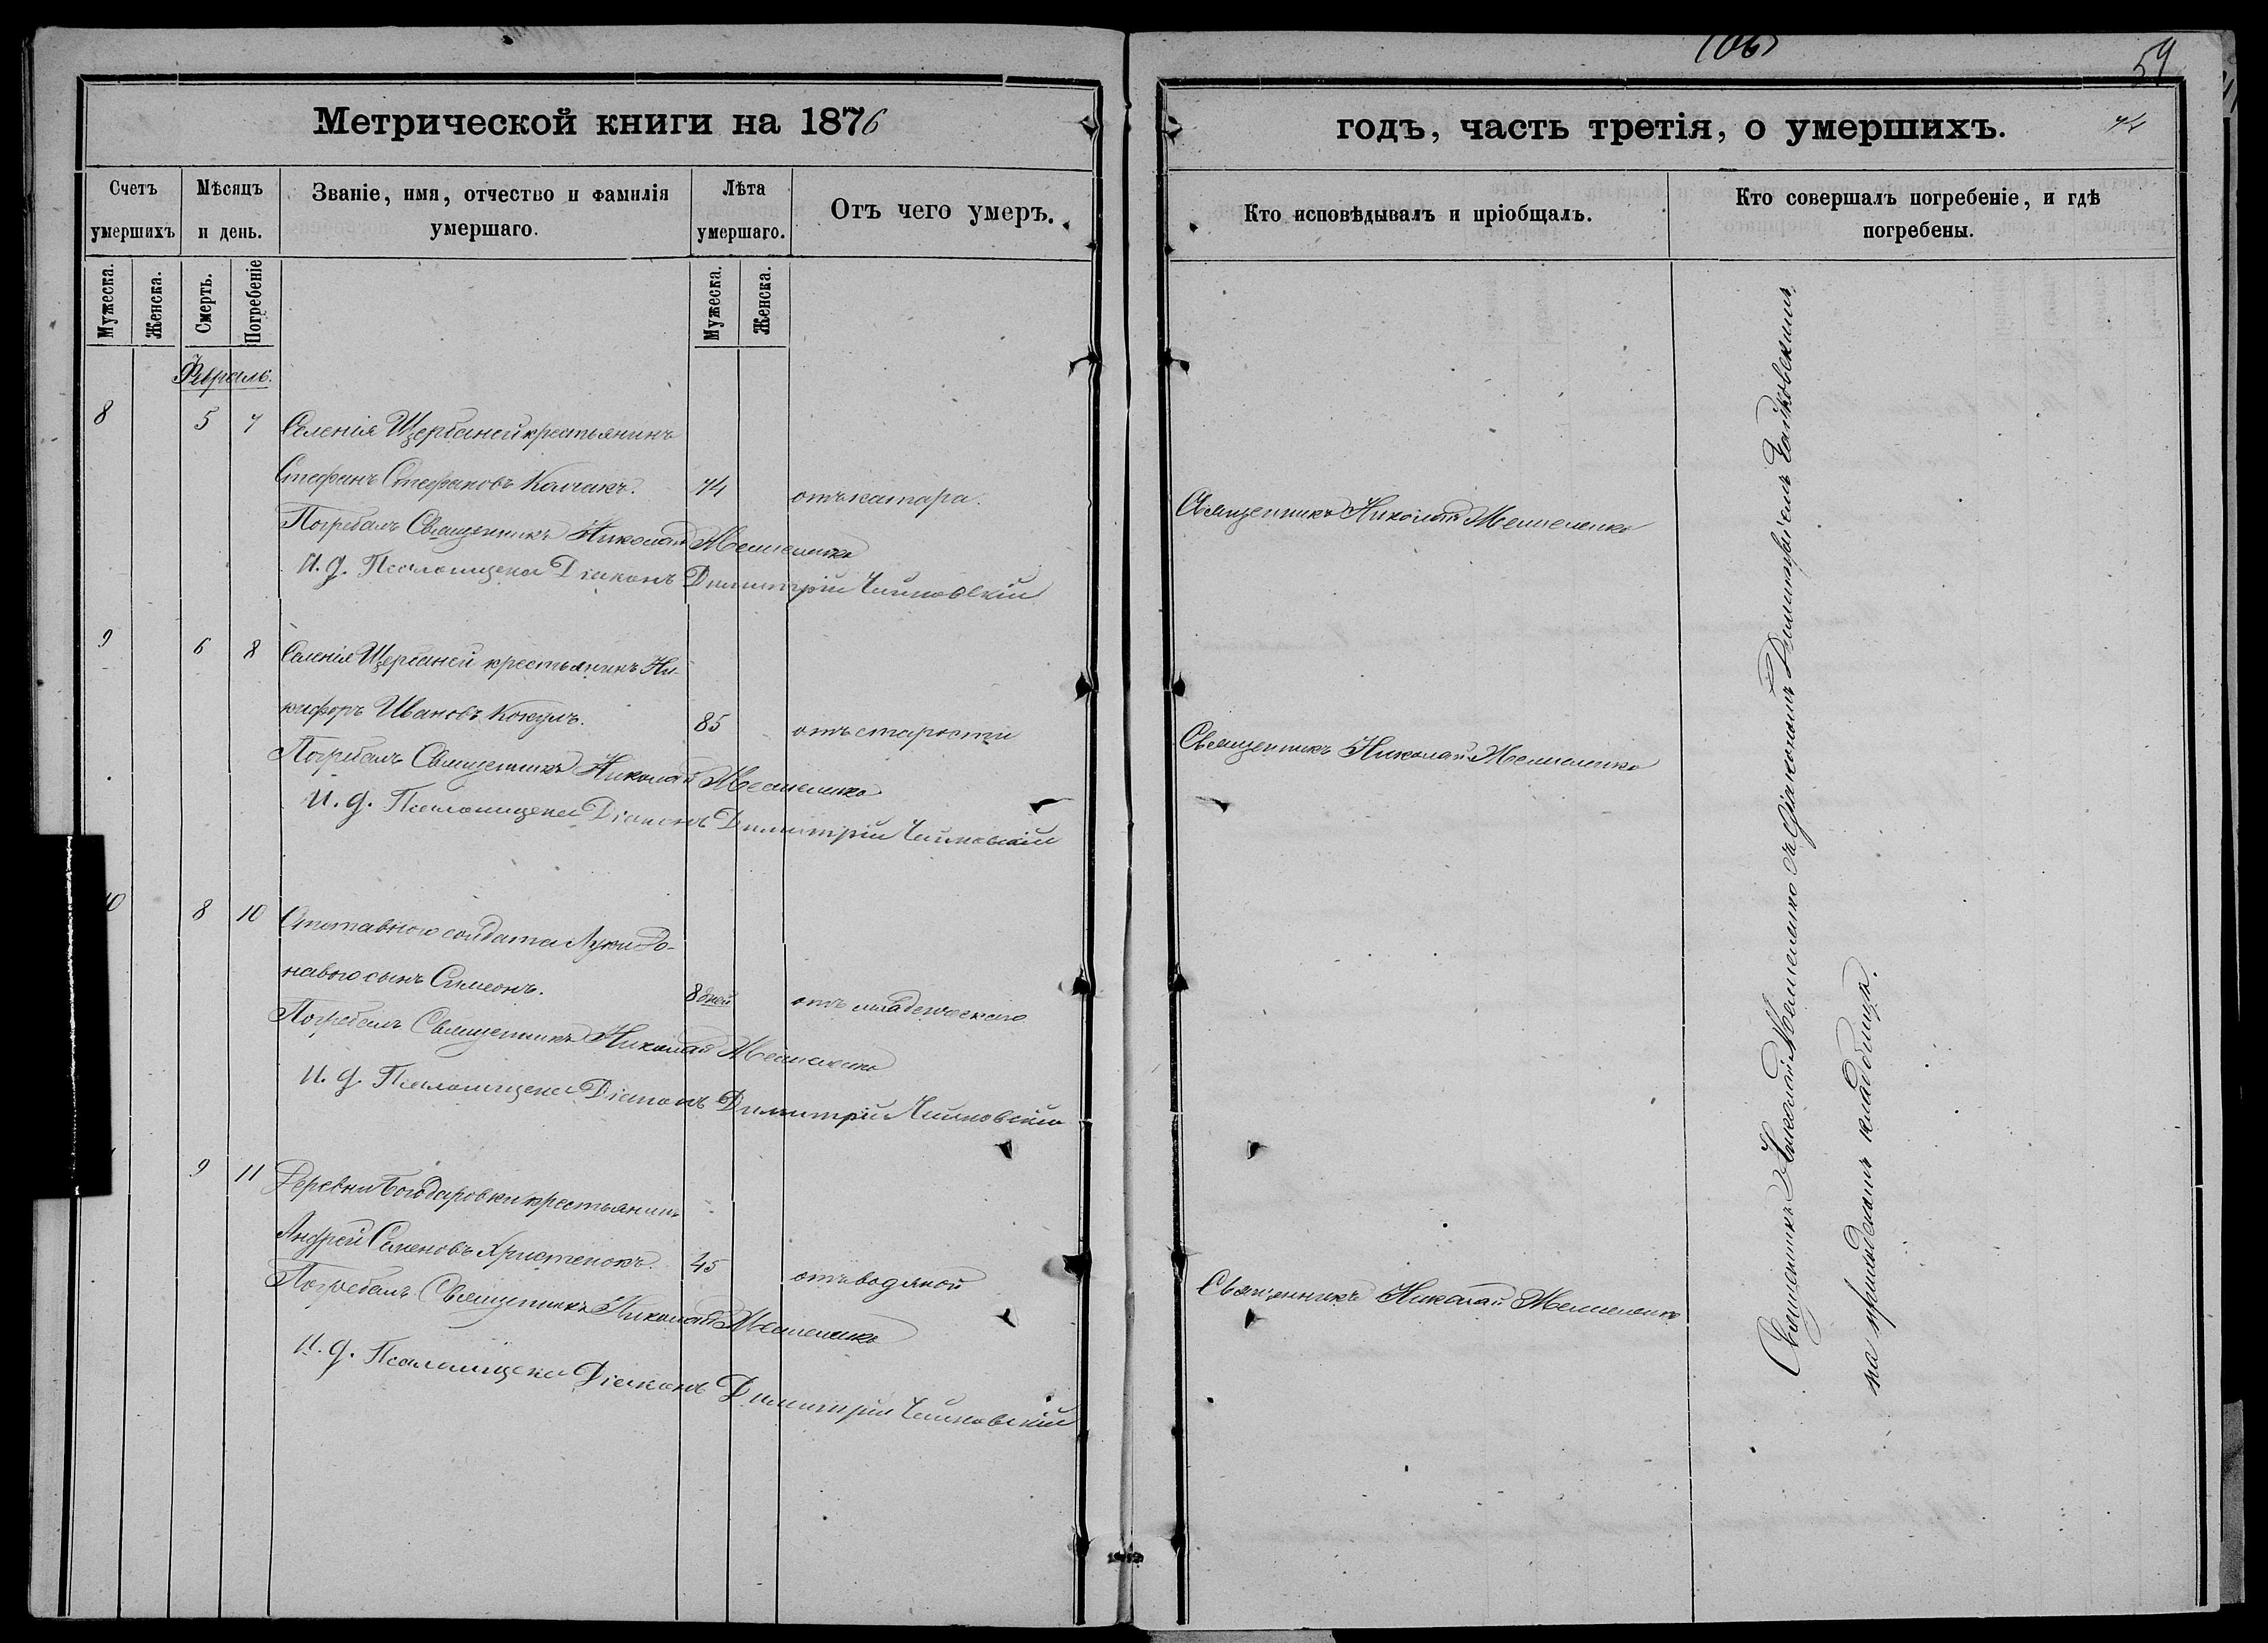 106
59
Метрической книги на 1876
годъ, часть третія, о умершихъ.
74
Счетъ умершихъ
Мѣсяцъ и день.
Званіе, имя, отчество и фамилія умершаго.
Лѣта умершаго.
Отъ чего умеръ.
Кто исповѣдывалъ и пріобщалъ.
Кто совершалъ погребеніе, и гдѣ погребены.
Мужеска.
Женска.
Смерть.
Погребеніе
Мужеска.
Женска.
Февраль.
8 5 7 Селенія Щербаней крестьянинъ
Стефанъ Стефановъ Колчакъ. 74 отъ катара. Священникъ Николай Мешеленко
Погребалъ Священникъ Николай Мешеленко
И. д. Псаломщика Діаконъ Димитрій Чайковскій
9 6 8 Селенія Щербаней крестьянинъ Ни-
кифоръ Ивановъ Кокулъ. 85 отъ старости Священникъ Николай Мешеленко
Погребалъ Священникъ Николай Мешеленко
И. д. Псаломщика Діаконъ Димитрій Чайковскій
10 8 10 Отставного солдата Луки
сынъ Симеонъ. 8 дней отъ младенческаго
Погребалъ Священникъ Николай Мешеленко
И. д. Псаломщика Діаконъ Димитрій Чайковскій
9 11 Деревни Богодаровки крестьянинъ
Андрей Семеновъ Христенокъ. 45 отъ водяной Священникъ Николай Мешеленко
Погребалъ Священникъ Николай Мешеленко
И. д. Псаломщика Діаконъ Димитрій Чайковскій
Священникъ Николай Мешеленко съ Діакономъ Димитріемъ Чайковскимъ
на приходскомъ кладбищѣ.